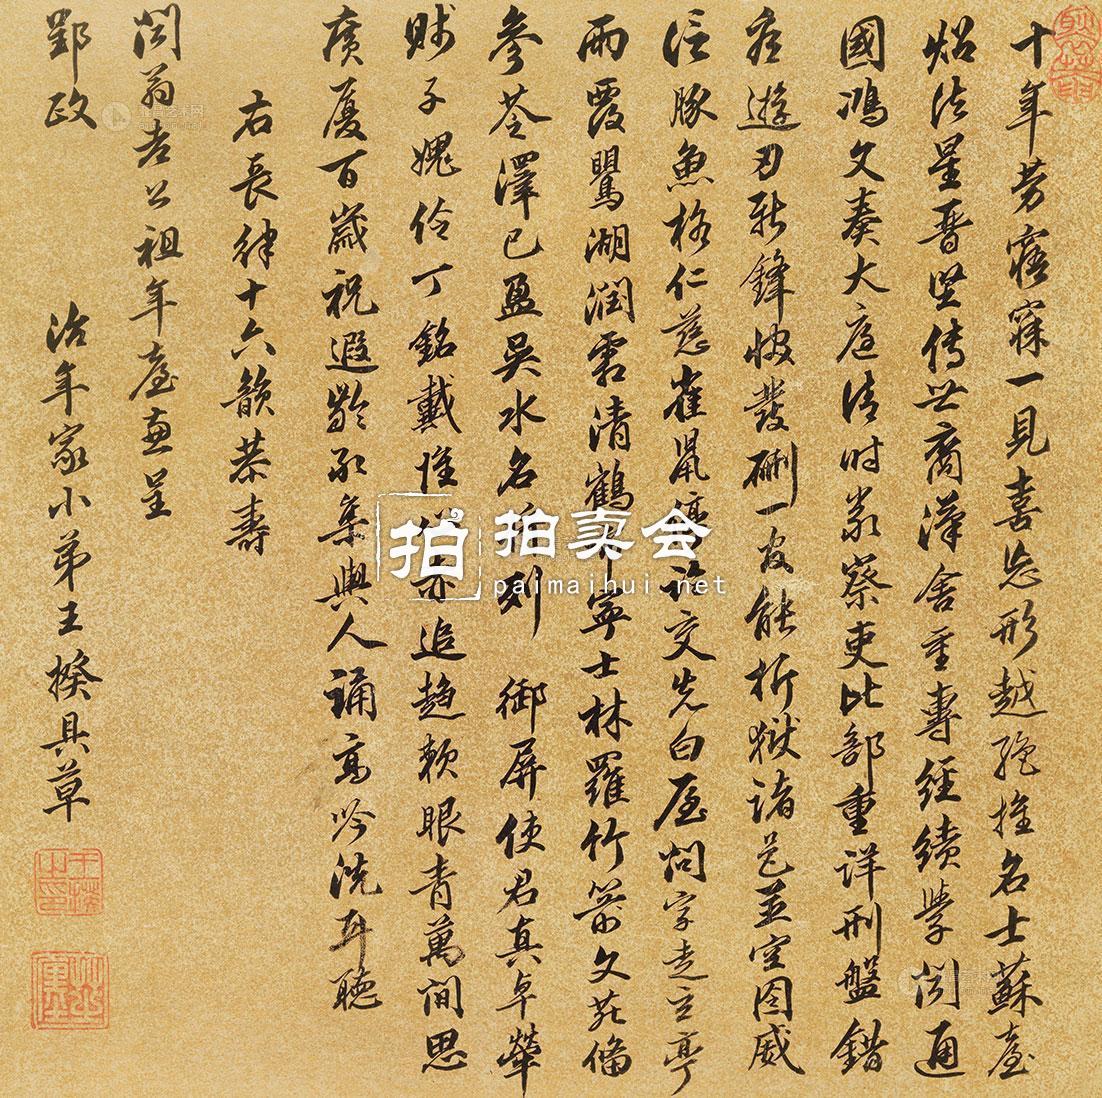 十年劳寤寐一見喜忘形越絕推名士蘇臺
炤法星晉傳世裔漢舍重專經績學閎通
國鴻文奏大庭清時崇察吏比部重詳刑盤錯
遊刃新鋒快發硎一官能折獄諸邑並空囹威
信豚魚格仁慈雀鼠停交先白屋問字走玄亭
雨覆鸎湖潤雲清鶴寧士林羅竹箭文苑備
參苓澤已盈吳水名列 御屏使君真卓犖
賤子媿伶丁銘戴惟亦追趨款眼青萬間思
廣廈百歲祝遐齡集輿人誦高吟洗耳聽
右長律十六韻恭壽
閎翁老公祖年臺並呈
郢政 治年家小弟王掞具草
拍 拍卖会
paimaihui.net